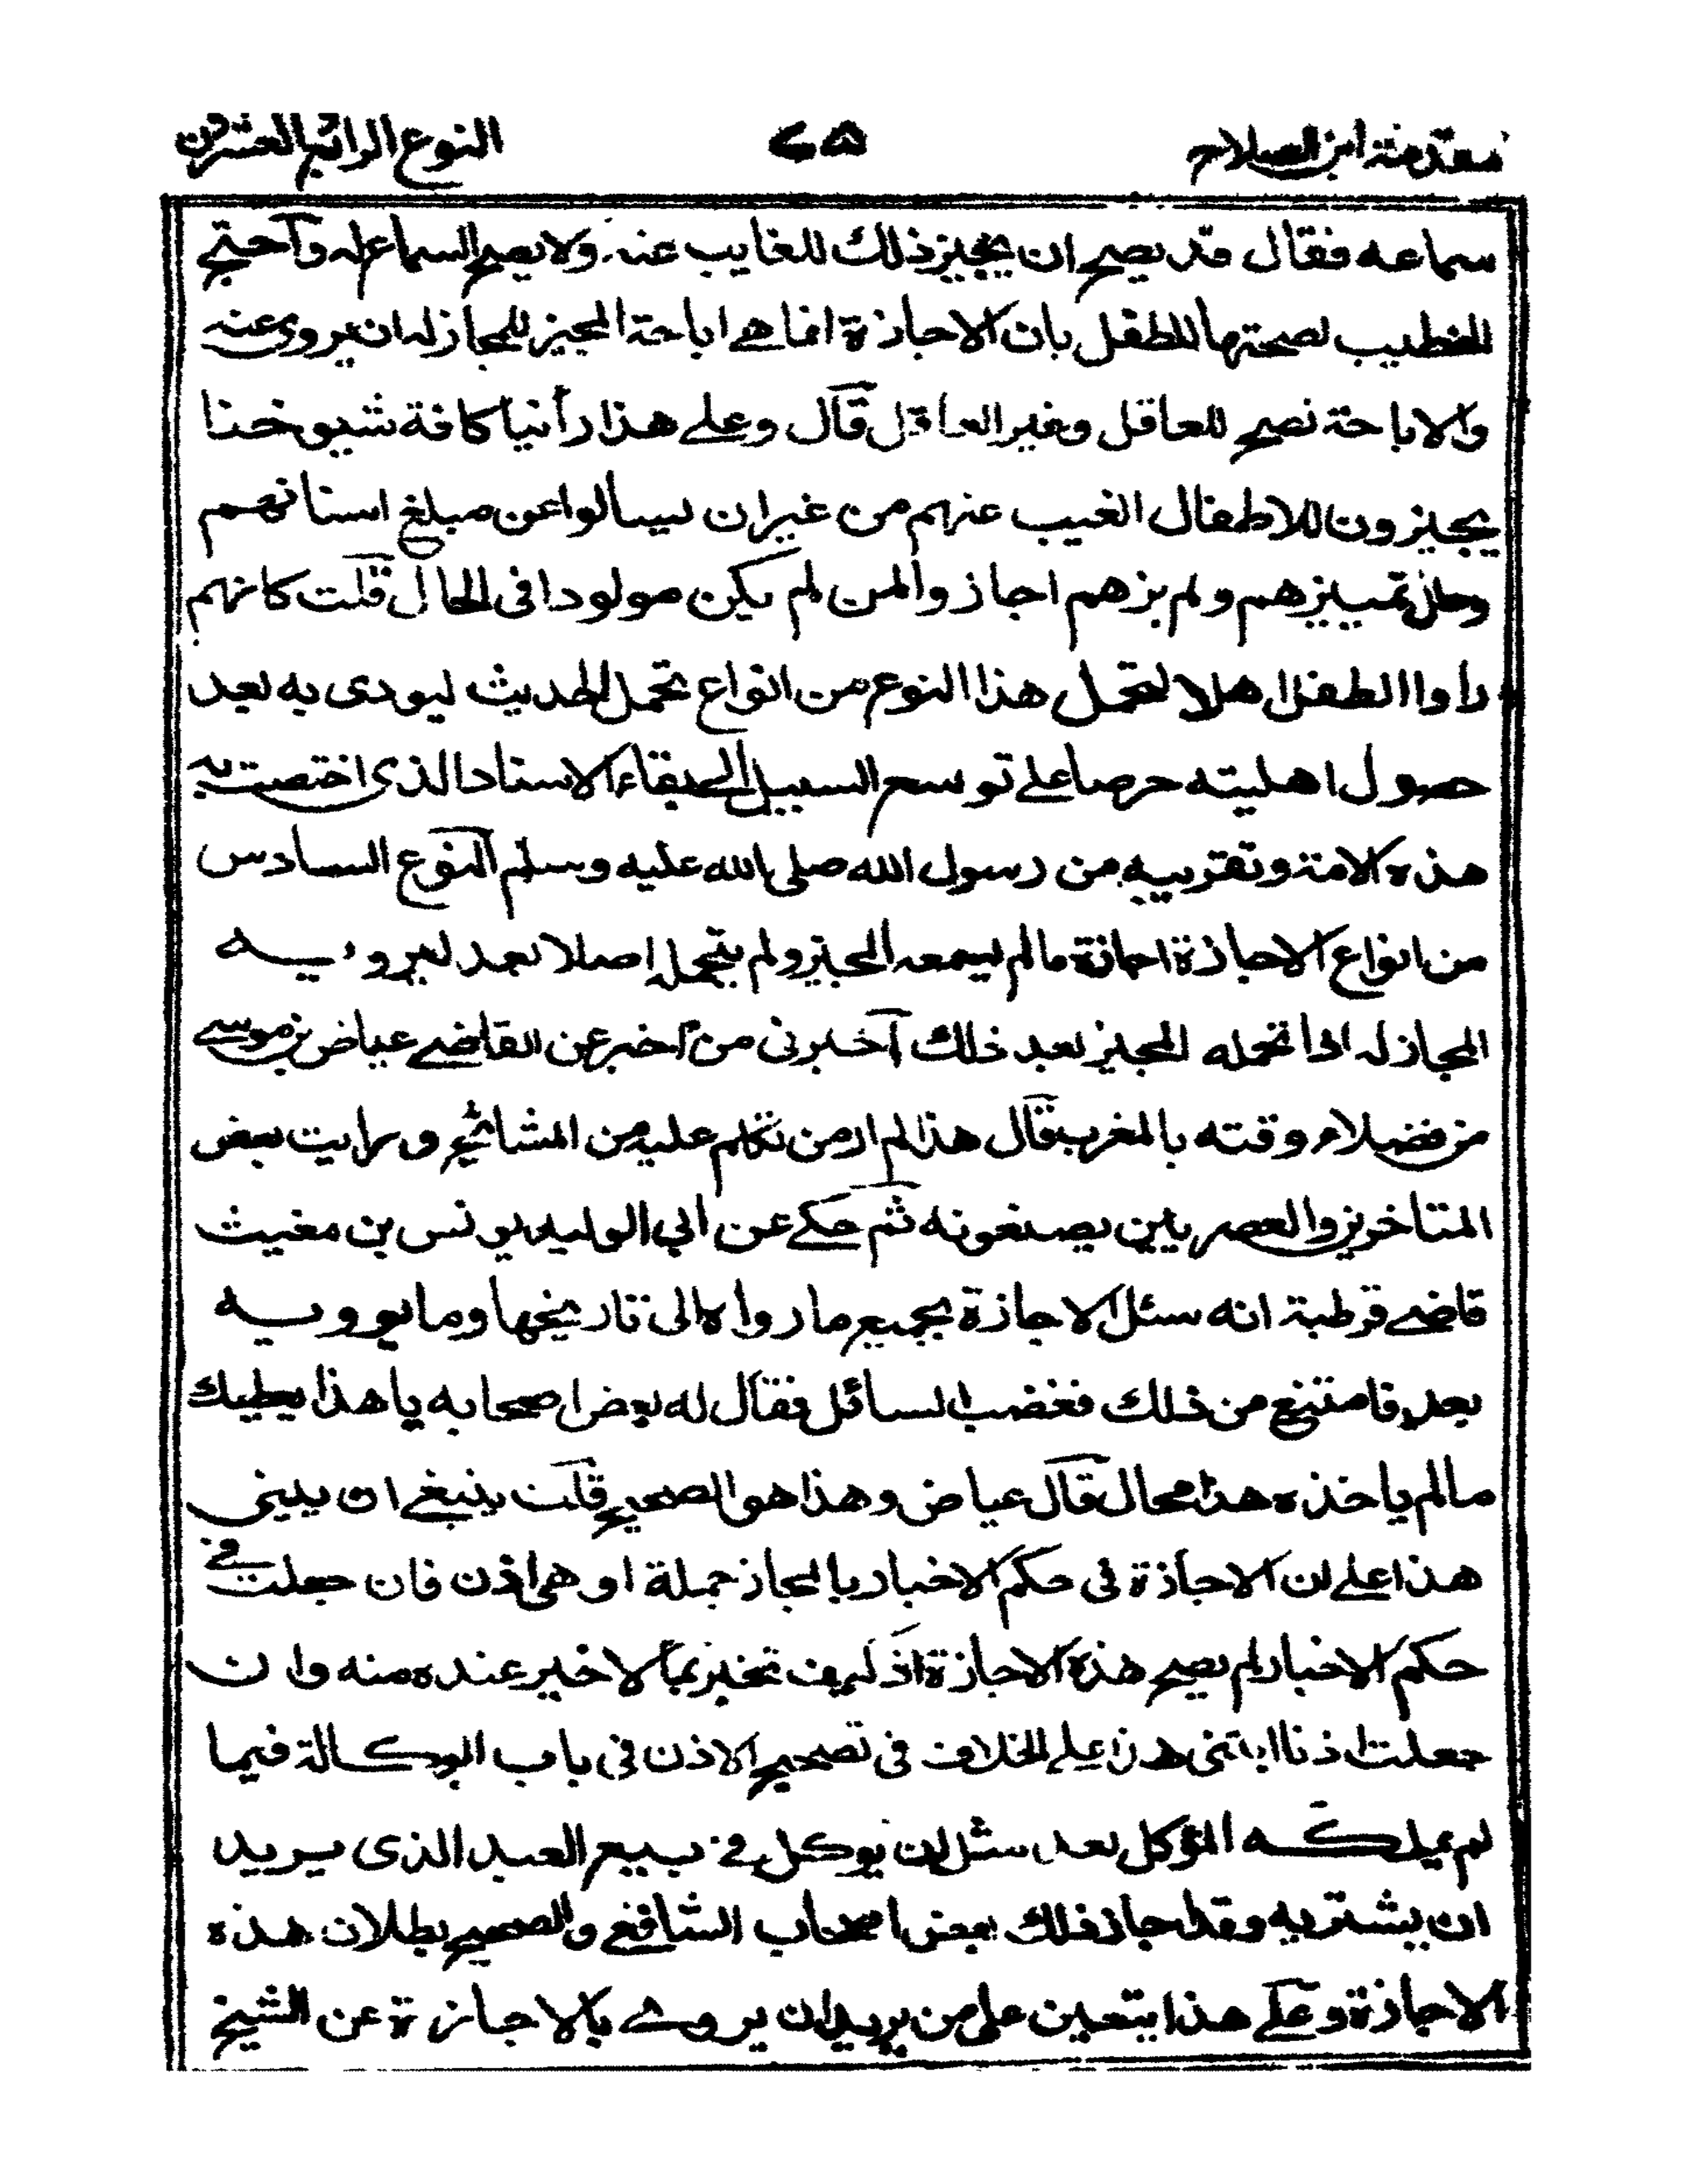 مقدمة ابن الصلاح ٧٥ النوع الرابع العشرون
سماعه فقال قد يصح ان يجيز ذلك للغايب عنه ولا يصح السماع له واحتج
الخطيب لصحتها للطفل بان الاجازة انما هے اباحة المجيز للمجاز له ان يروى عنه
والاباحة تصح للعاقل وغير العاقل قال وعلے هذا رأينا كافة شيوخنا
يجيزون للاطفال الغيب عنهم من غير ان يسألوا عن مبلغ اسنانهم
وحال تمييزهم ولم نرهم اجازوا لمن لم يكن مولودا فى الحال قلت كانهم
راوا الطفل اهلا لتحمل هذا النوع من انواع تحمل الحديث ليودى به بعد
حصول اهليته حرصا على توسع السبيل الے بقاء الاسناد الذى اختصت به
هذه الامة وتقريبه من رسول الله صلى الله عليه وسلم النوع السادس
من انواع الاجازة اجازة ما لم يسمعه المجيز ولم يتحمله اصلا بعد ليرويه
المجاز له اذا تحمله المجيز بعد ذلك آخبرنى من اخبر عن القاضے عياض بن موسے
من فضلاء وقته بالمغرب قال هذا لم ار من تكلم عليه من المشائخ ورايت بعض
المتاخرين والعصريين يصنعونه ثم حكے عن ابي الوليد يونس بن مغيث
قاضے قرطبة انه سئل الاجازة بجميع ما رواه الى تاريخها وما يرويه
بعد فامتنع من ذلك فغضب السائل فقال له بعض اصحابه يا هذا يعطيك
ما لم ياخذه هذا محال قال عياض وهذا هو الصحيح قلت ينبغے ان يبنى
هذا علے ان الاجازة فى حكم الاخبار بالمجاز جملة او هى اذن فان جعلت فے
حكم الاخبار لم يصح هذه الاجازة اذ كيف تخبر بما لا خبر عنده منه وان
جعلت اذنا ابتنى هذا علے الخلاف فى تصحيح الاذن فى باب الوكالة فيما
لم يملكه المؤكل بعد مثل ان يوكل فے بيع العبد الذى يريد
ان يشتريه وقد اجاز ذلك بعض اصحاب الشافعے والصحيح بطلان هذه
الاجازة وعلے هذا يتعين على من يريد ان يروے بالاجازة عن الشيخ